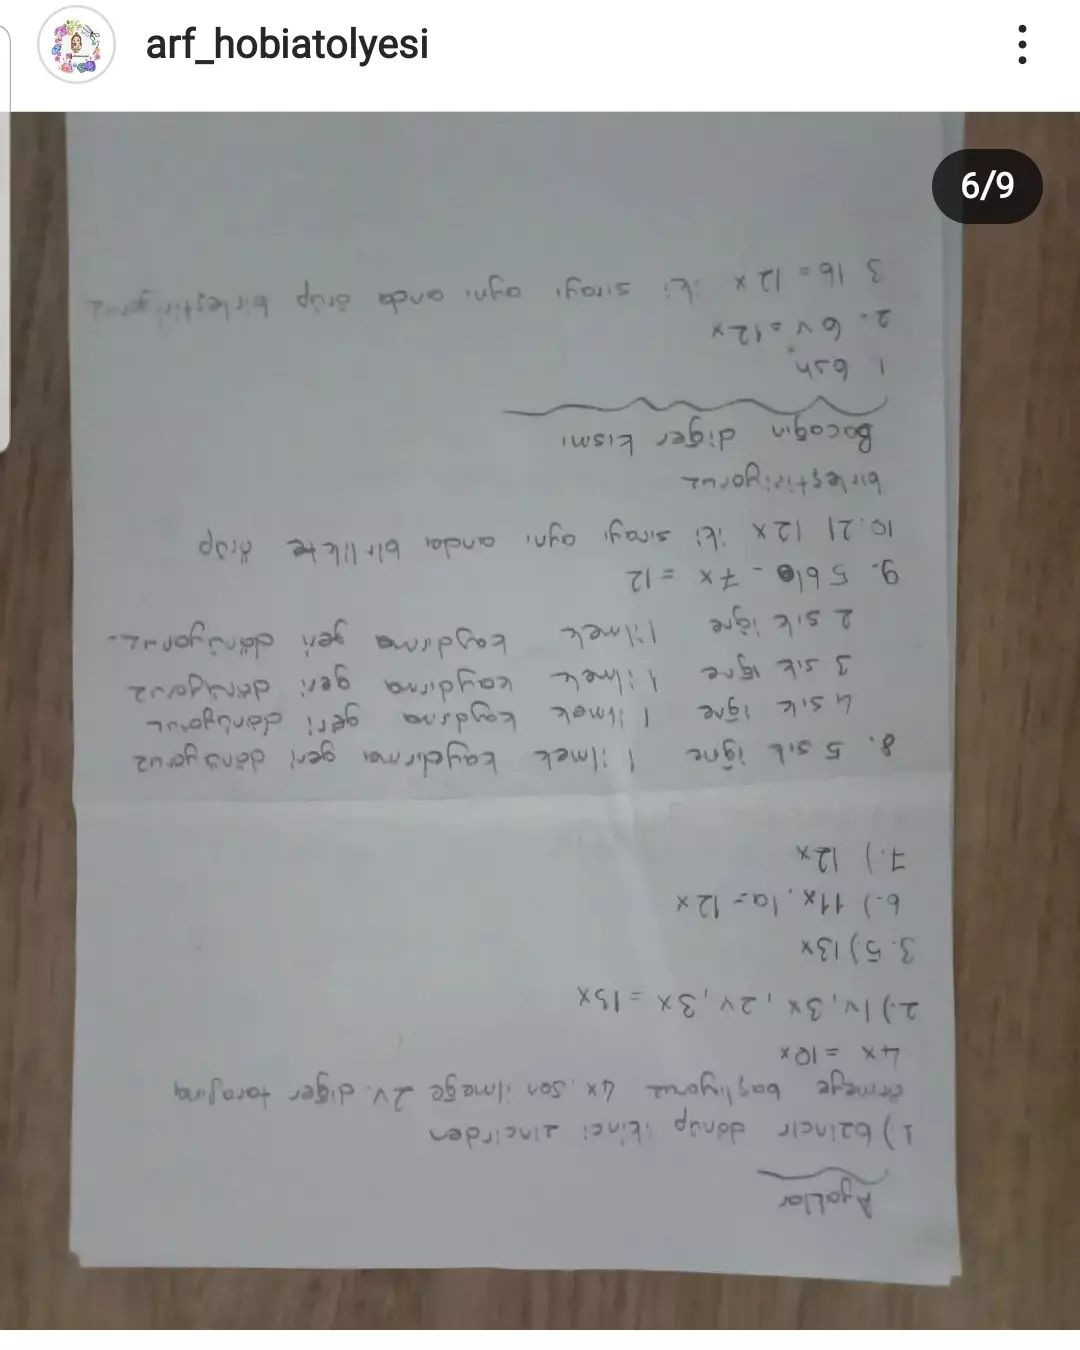 arf_hobiatolyesi
6/9
Ayaklar
1) 6zincir dönüp ikinci zincirden
örmeye başlıyoruz 4x, son ilmeğe 2v. diğer tarafına
4x = 10x
2.) 1v, 3x, 2v, 3x = 13x
3. 5.) 13x
6.) 11x, 1a = 12x
7.) 12x
8. 5 sık iğne 1 ilmek kaydırma geri dönüyoruz
4 sık iğne 1 ilmek kaydırma geri dönüyoruz
3 sık iğne 1 ilmek kaydırma geri dönüyoruz
2 sık iğne 1 ilmek kaydırma geri dönüyoruz.
9. 5 blo - 7x = 12
10. 21 12x iki sırayı aynı anda birlikte örüp
birleştiriyoruz
Bacağın diğer kısmı
1. 6sh
2. 6v = 12x
3 16 = 12x iki sırayı aynı anda örüp birleştiriyoruz